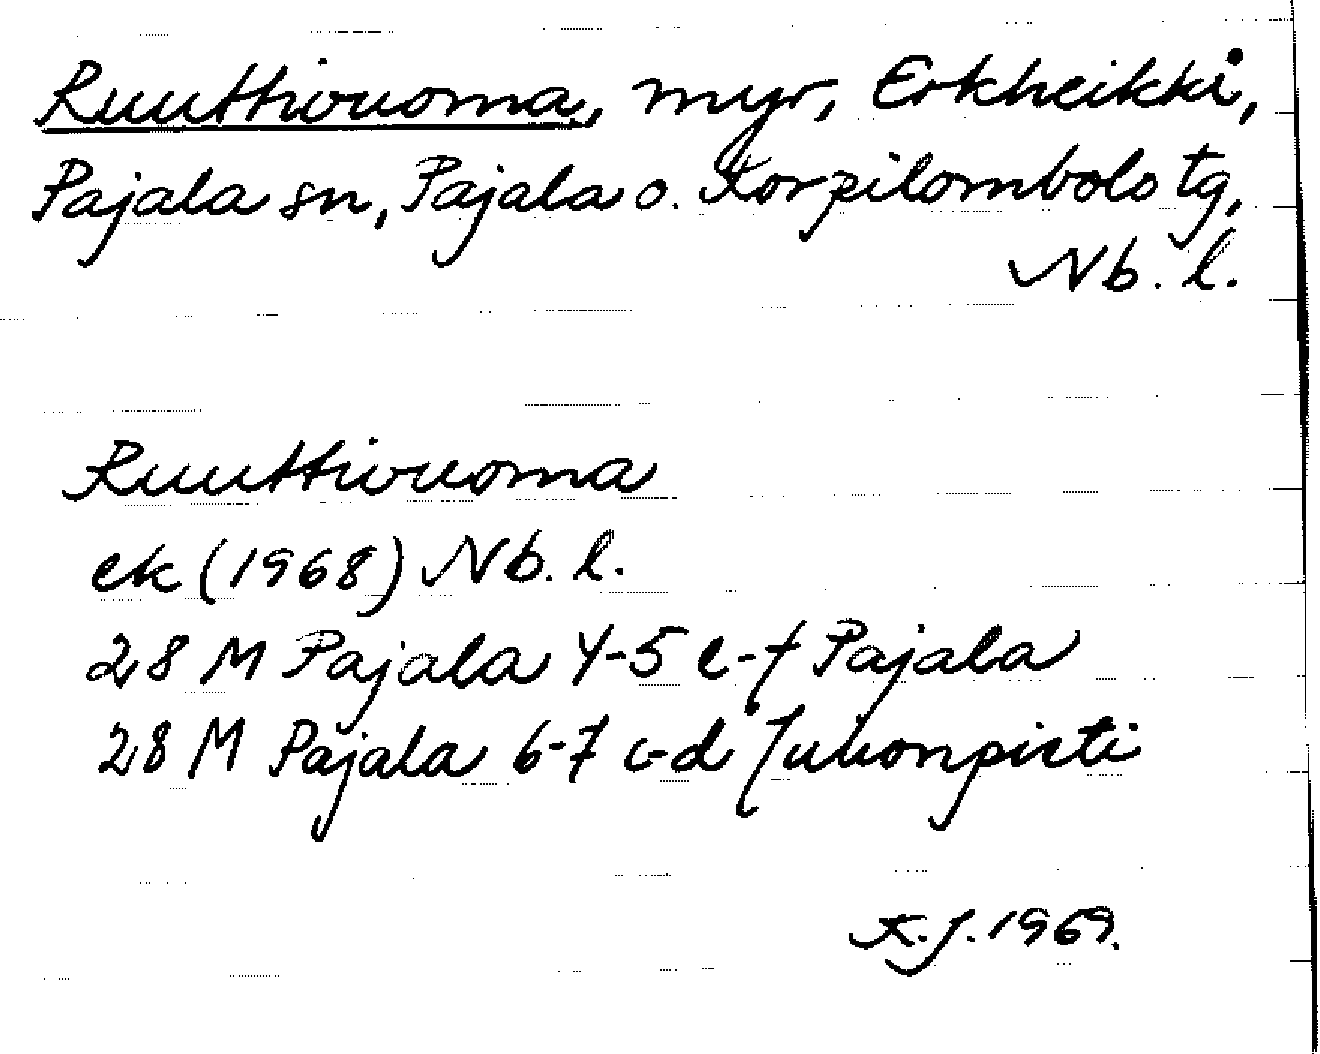 Ruuttivuoma, myr, Erkheikki,
Pajala sn, Pajala o. Korpilombolo tg,
Nb. l.
Ruuttivuoma
ek (1968) Nb. l.
28 M Pajala 4-5 e-f Pajala
28 M Pajala 6-7 c-d Juhonpieti
K.J. 1969.